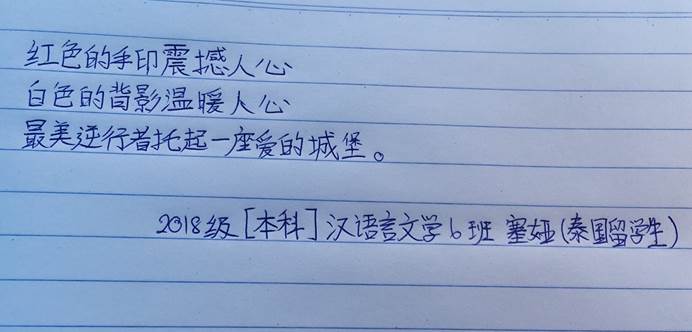 红色的手印震撼人心
白色的背影温暖人心
最美逆行者托起一座爱的城堡。
2018级[本科]汉语言文学6班 塞娅(泰国留学生)